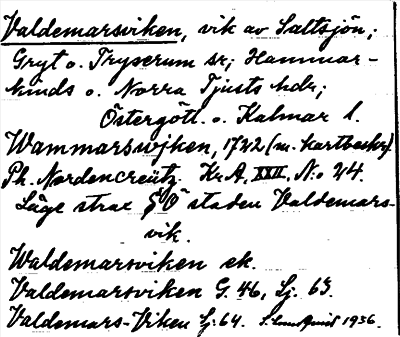 Valdemarsviken, vik av Saltsjön;
Gryt o. Tryserum sr; Hammar-
kinds o. Norra Tjusts hdr;
Östergötl. o. Kalmar l.
Wammarswijken, 1722 (m. kartbeskr)
Ph. Nordencreütz Kr.A. XXII. N:o 24.
Läge strax S O staden Valdemars-
vik.
Waldemarsviken ek.
Valdemarsviken G. 46, Sj. 63.
Valdemars-Viken Sj. 64. S. Lundquist 1936.